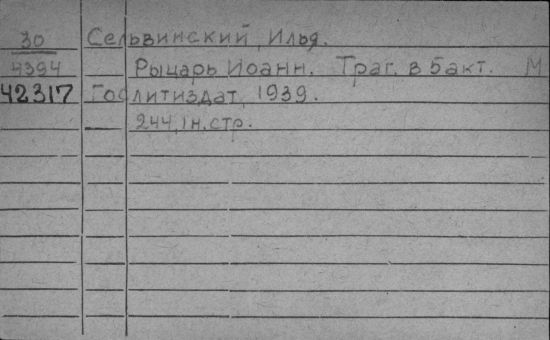 30 Сельвинский, Илья.
4394 Рыцарь Иоанн. Траг. в 5 акт. М
42317 Гослитиздат, 1939.
244, 1 н. стр.